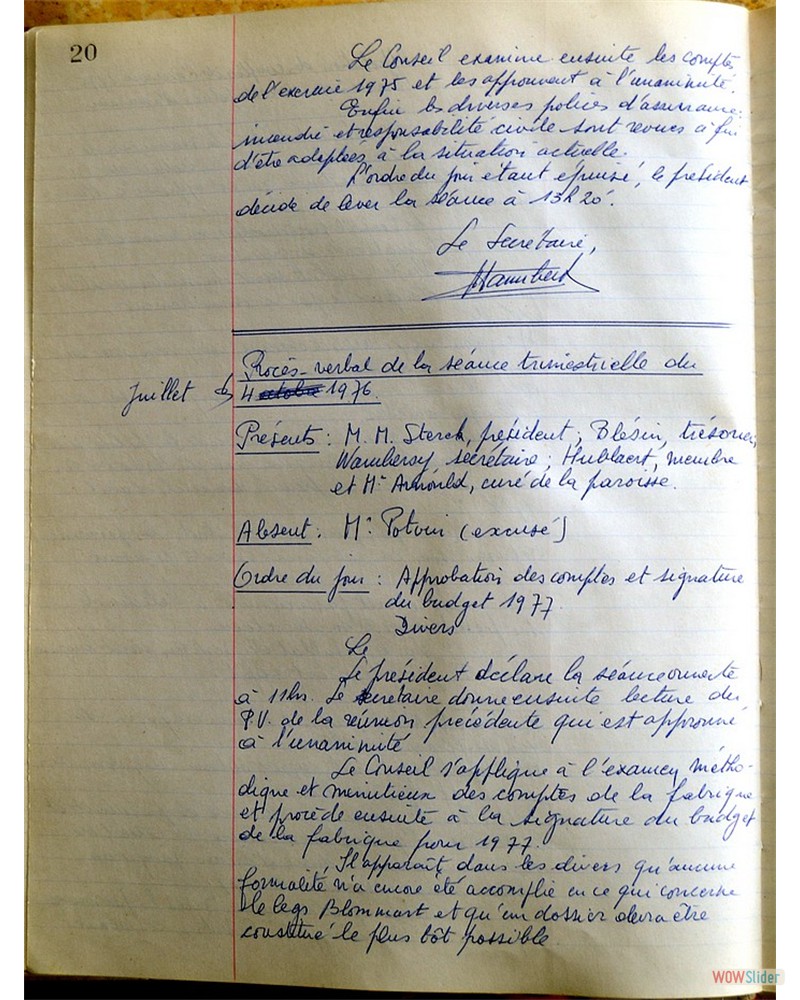 20
Le Conseil examine ensuite les comptes
de l'exercice 1975 et les approuvent à l'unanimité.
Enfin les diverses polices d'assurance:
incendie et responsabilité civile sont revues à fin
d'être adaptées à la situation actuelle.
L'ordre du jour étant épuisé, le président
décide de lever la séance à 13h20'.
Le Secrétaire,
Procès-verbal de la séance trimestrielle du
Juillet
4 octobre 1976.
Présents : M.M. Sterck, président; Blésin, trésorier,
Wambersy, secrétaire; Hublaert, membre
et Mr Arnould, curé de la paroisse.
Absent : Mr Potvin (excusé)
Ordre du jour : Approbation des comptes et signature
du budget 1977.
Divers
Le
Le président déclare la séance ouverte
à 11hs. Le secrétaire donne ensuite lecture du
P.V. de la réunion précédente qui est approuvé
à l'unanimité
Le Conseil s'applique à l'examen métho-
dique et minutieux des comptes de la fabrique
et procède ensuite à la signature du budget
de la fabrique pour 1977.
Il apparaît dans les divers qu'aucune
formalité n'a encore été accomplie en ce qui concerne
le legs Blommart et qu'un dossier devra être
constitué le plus tôt possible
WOWSlider